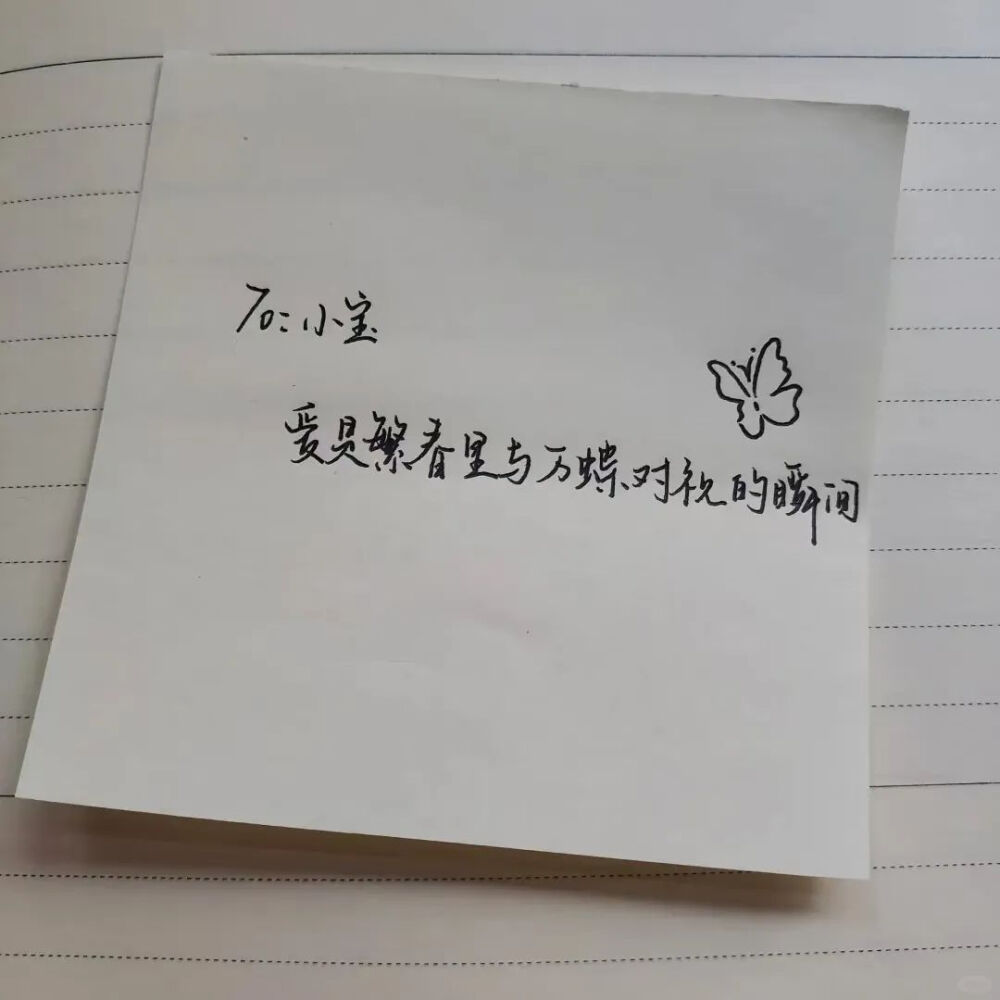 To:小宝
爱是繁春里与万蝶对视的瞬间